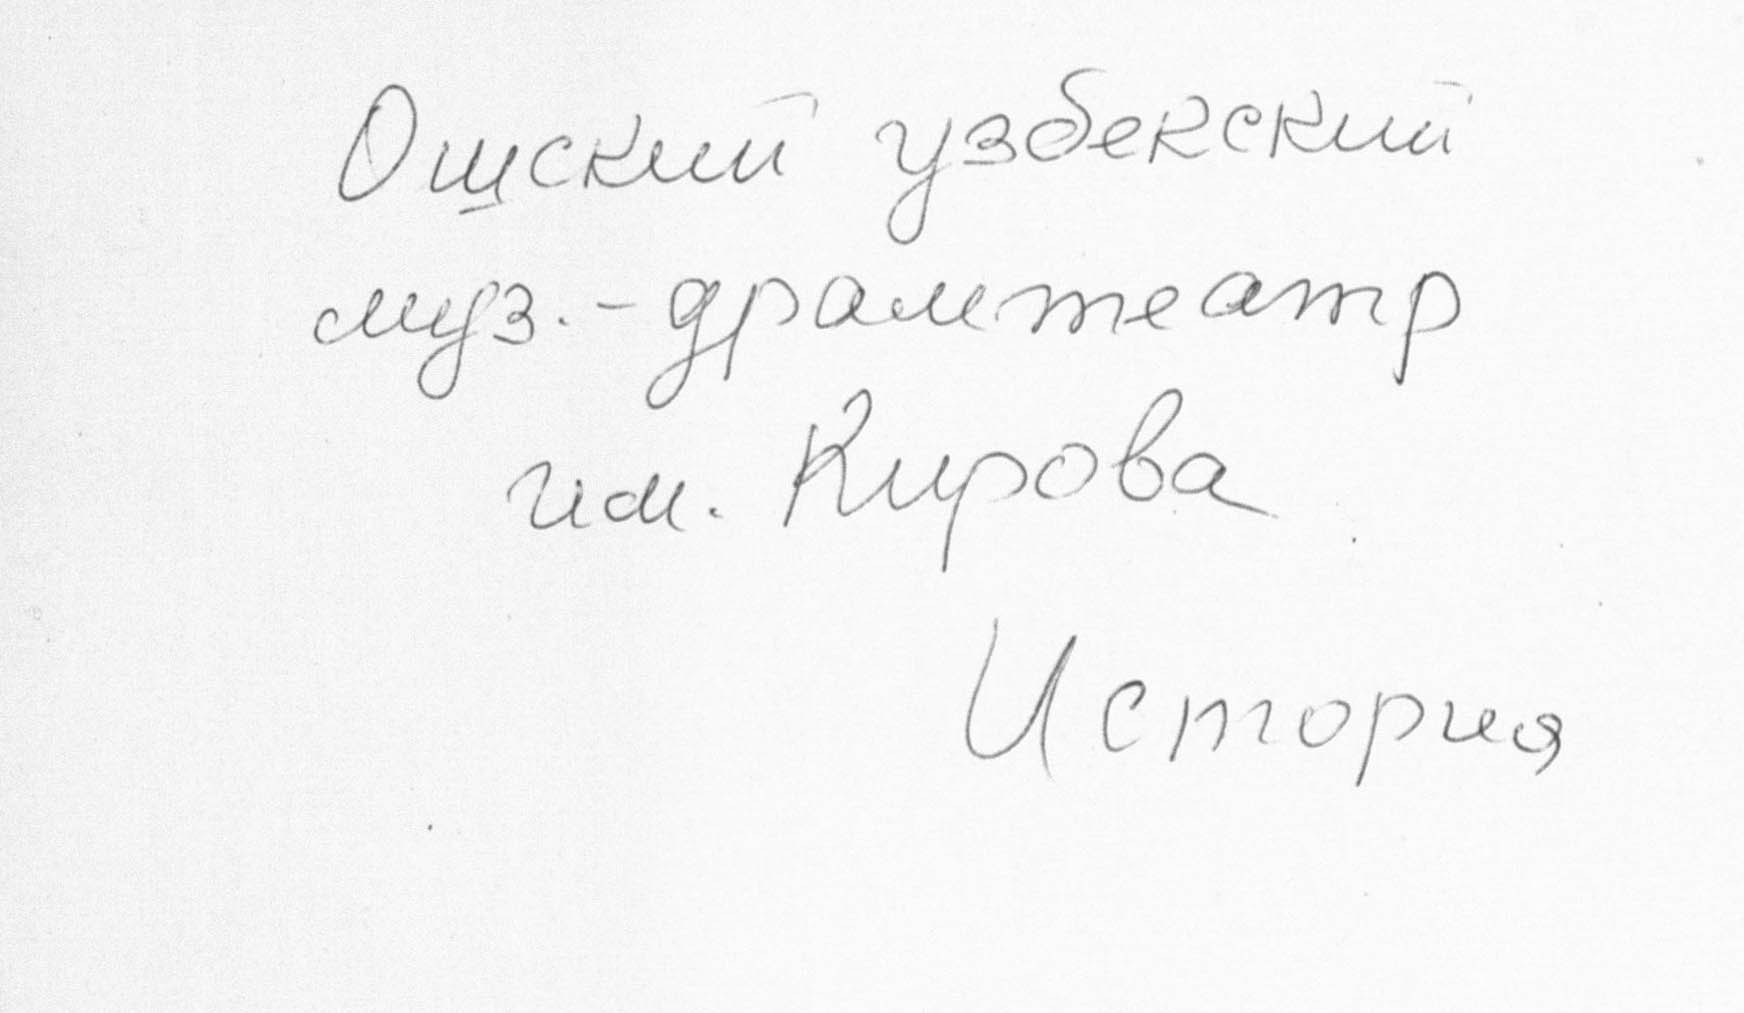 Ошский узбекский
муз.-драмтеатр
им. Кирова
История